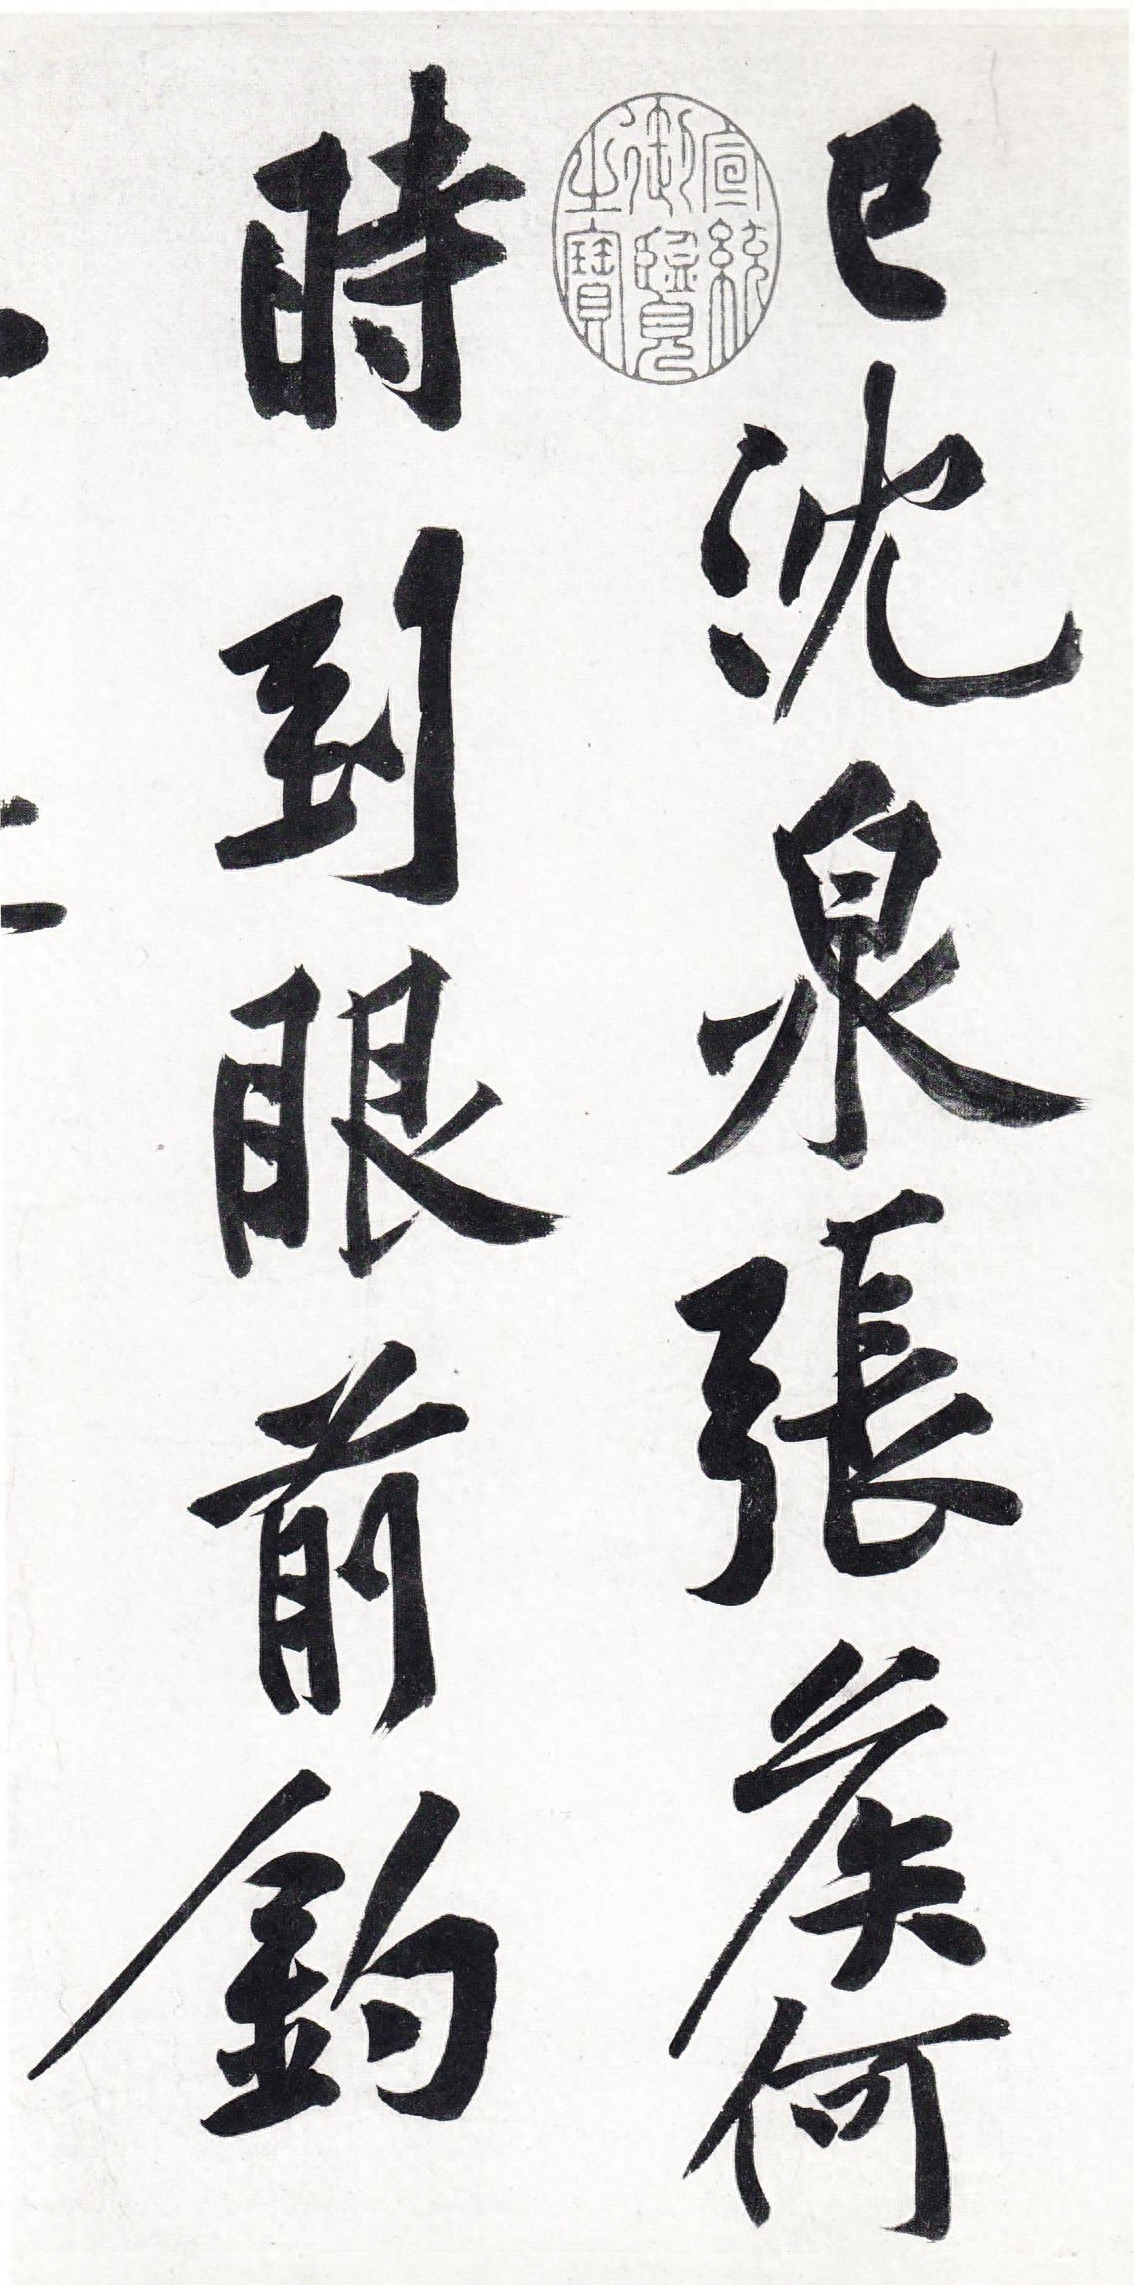 已沈泉張矦何
時到眼前釣
宣統
御覽
之寶